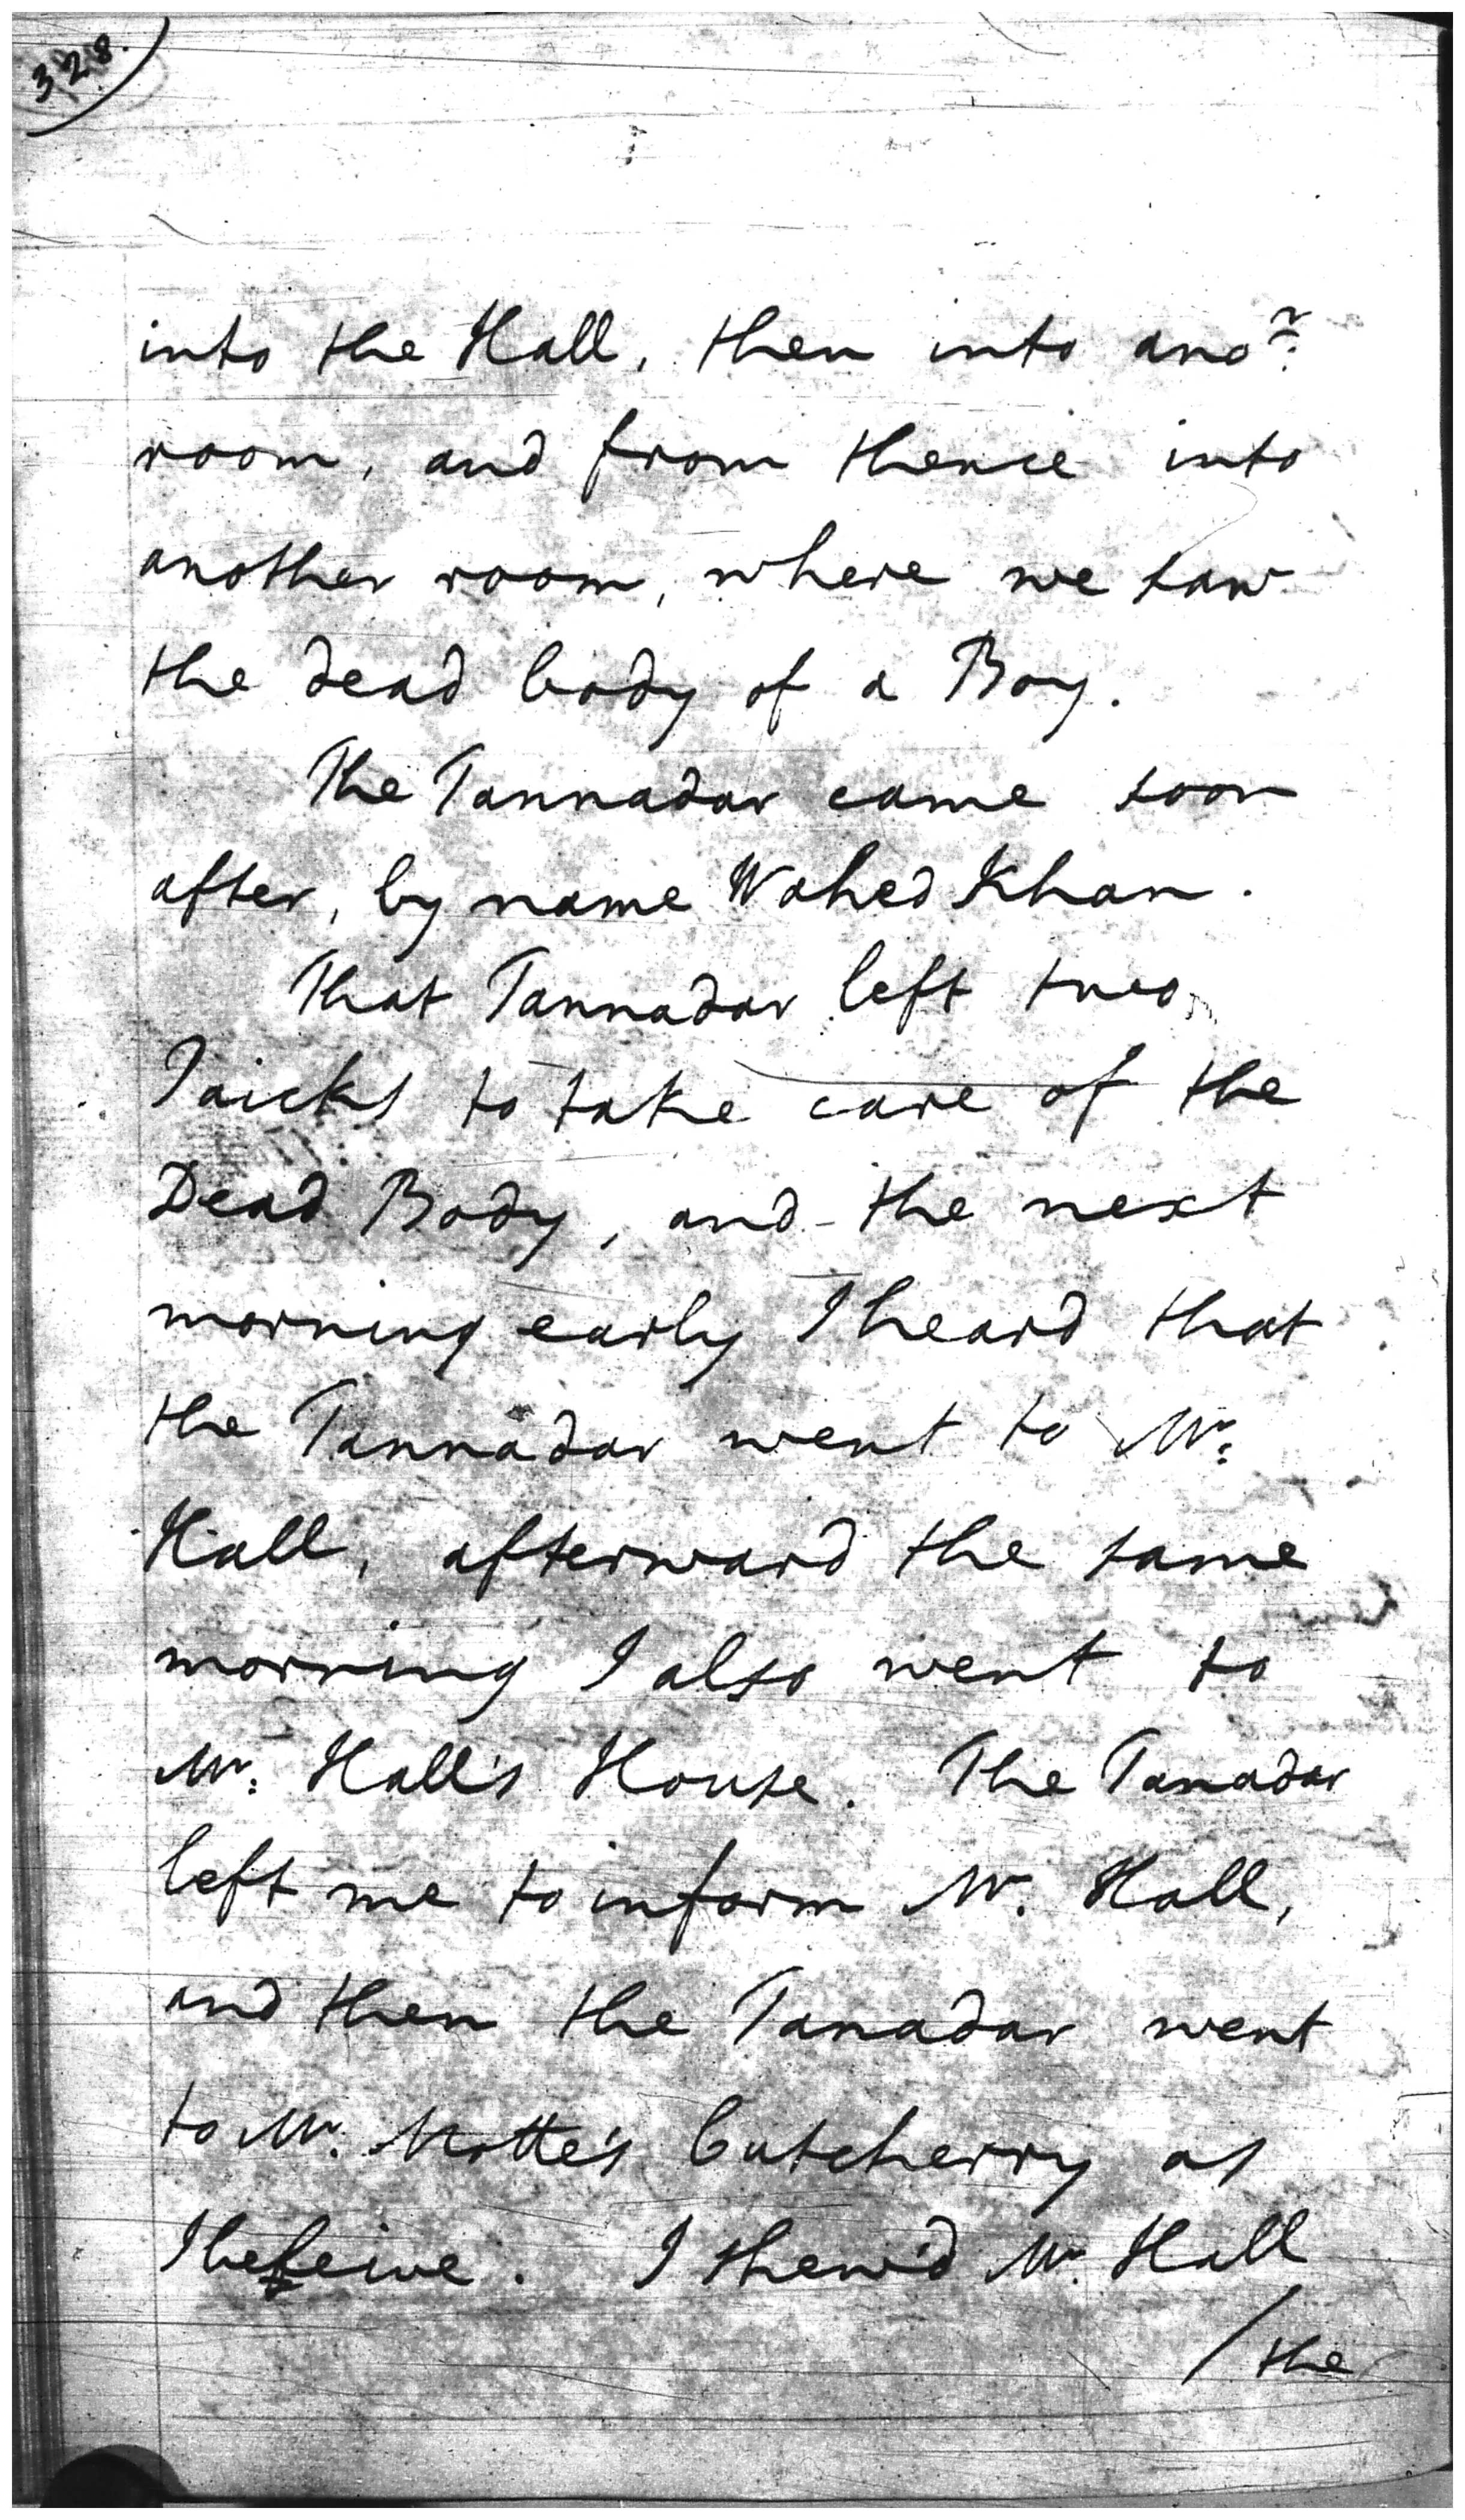 328.
into the Hall, then into ano.r
room, and from thence into
another room, where we saw
the dead body of a Boy.
The Tannadar came soon
after, by name Wahed Khan.
That Tannadar left two
Paicks to take care of the
Dead Body, and the next
morning early I heard that
the Tannadar went to Mr.
Hall, afterward the same
morning I also went to
Mr. Hall's House. The Tanadar
left me to inform Mr. Hall,
and then the Tanadar went
to Mr. Motte's Cutcherry as
I I shew'd Mr. Hall
/ the